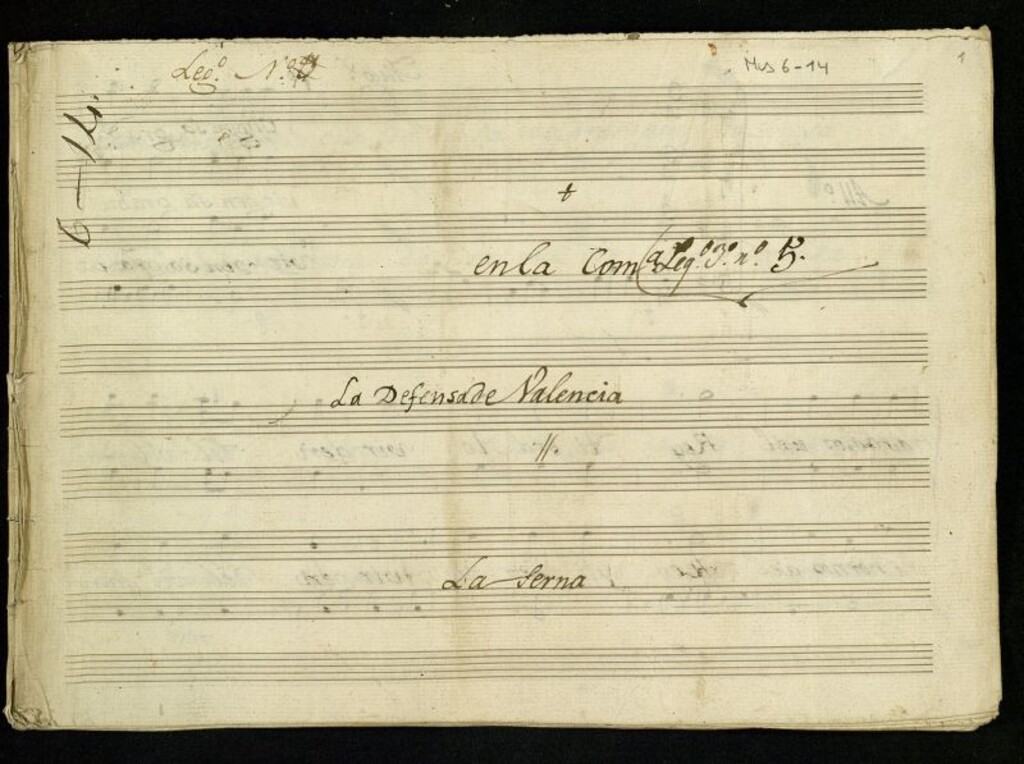 Leg.º N.º
Mus 6-14
1
6-14.
+
en la Com.ª Leg.º 3.º n.º 5.
La Defensa de Valencia
//.
La Serna